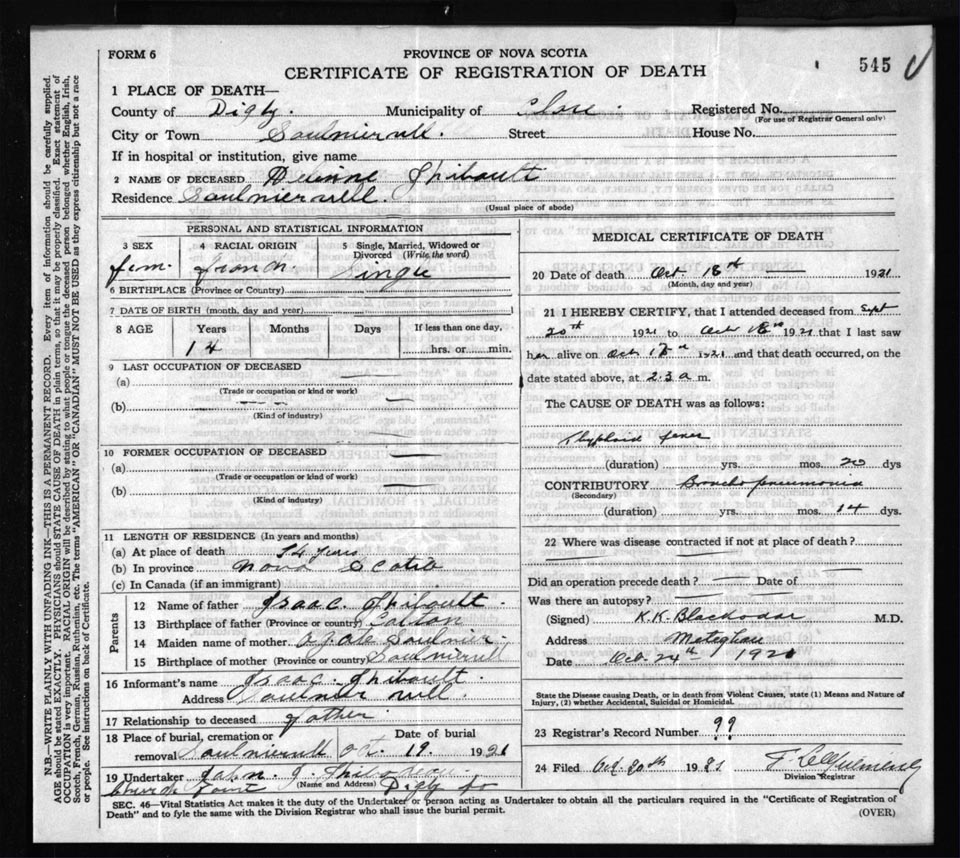 FORM 6
PROVINCE OF NOVA SCOTIA
545
CERTIFICATE OF REGISTRATION OF DEATH
1 PLACE OF DEATH—
County of Digby. Municipality of Clare. Registered No.
(For use of Registrar General only)
City or Town Saulnierville. Street House No.
If in hospital or institution, give name
2 NAME OF DECEASED Thibault
Residence Saulnierville.
(Usual place of abode)
PERSONAL AND STATISTICAL INFORMATION
3 SEX 4 RACIAL ORIGIN 5 Single, Married, Widowed or Divorced (Write the word)
fem. french Single
6 BIRTHPLACE (Province or Country)
7 DATE OF BIRTH (month, day and year)
8 AGE Years Months Days If less than one day,
14 hrs. or min.
9 LAST OCCUPATION OF DECEASED
(a)
(Trade or occupation or kind or work)
(b)
(Kind of industry)
10 FORMER OCCUPATION OF DECEASED
(a)
(Trade or occupation or kind of work)
(b)
(Kind of industry)
11 LENGTH OF RESIDENCE (In years and months)
(a) At place of death 14 years
(b) In province Nova Scotia
(c) In Canada (if an immigrant)
Parents
12 Name of father Isaac. Thibault.
13 Birthplace of father (Province or country)
14 Maiden name of mother Saulnier
15 Birthplace of mother (Province or country) Saulnierville
16 Informant's name Isaac. Thibault.
Address Saulnierville
17 Relationship to deceased father
18 Place of burial, cremation or removal Date of burial
Saulnierville Oct. 19. 1921
19 Undertaker John J.
(Name and Address)
Church Point Digby Co
MEDICAL CERTIFICATE OF DEATH
20 Date of death Oct. 18th 1921
(Month, day and year)
21 I HEREBY CERTIFY, that I attended deceased from Sept
20th 1921 to Oct 18th 1921 that I last saw
her alive on Oct 17th 1921 and that death occurred, on the
date stated above, at 2.30 a m.
The CAUSE OF DEATH was as follows:
Typhoid fever
(duration) yrs. mos. 20 dys
CONTRIBUTORY Broncho pneumonia
(Secondary)
(duration) yrs. mos. 14 dys.
22 Where was disease contracted if not at place of death?
Did an operation precede death? Date of
Was there an autopsy?
(Signed) K.K. Blackadar M.D.
Address Meteghan
Date Oct. 24th 1920
State the Disease causing Death, or in death from Violent Causes, state (1) Means and Nature of
Injury, (2) whether Accidental, Suicidal or Homicidal.
23 Registrar's Record Number 99
24 Filed Oct. 20th 1921
Division Registrar
SEC. 46—Vital Statistics Act makes it the duty of the Undertaker or person acting as Undertaker to obtain all the particulars required in the "Certificate of Registration of
Death" and to fyle the same with the Division Registrar who shall issue the burial permit.
(OVER)
N.B.—WRITE PLAINLY WITH UNFADING INK—THIS IS A PERMANENT RECORD. Every item of information should be carefully supplied.
AGE should be stated EXACTLY. PHYSICIANS should STATE CAUSE OF DEATH in plain terms, so that it may be properly classified. Exact statement of
OCCUPATION is very important. RACIAL ORIGIN will be described by stating to what people or tongue the deceased person belonged whether English, Irish,
Scotch, French, German, Russian, Ruthenian, etc. The terms "AMERICAN" OR "CANADIAN" MUST NOT BE USED as they express citizenship but not a race
or people. See instructions on back of Certificate.